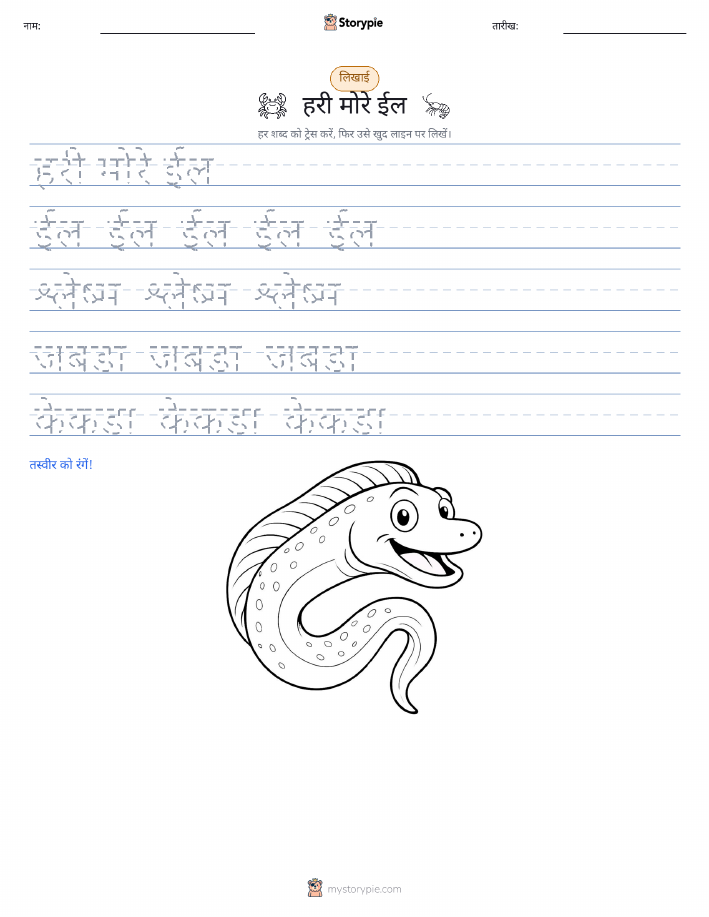 नाम:
Storypie
तारीख:
लिखाई
हरी मोरे ईल
हर शब्द को ट्रेस करें, फिर उसे खुद लाइन पर लिखें।
हरी मोरे ईल
ईल ईल ईल ईल ईल
श्लेष्म श्लेष्म श्लेष्म
जबड़ा जबड़ा जबड़ा
केकड़ा केकड़ा केकड़ा
तस्वीर को रंगें!
mystorypie.com